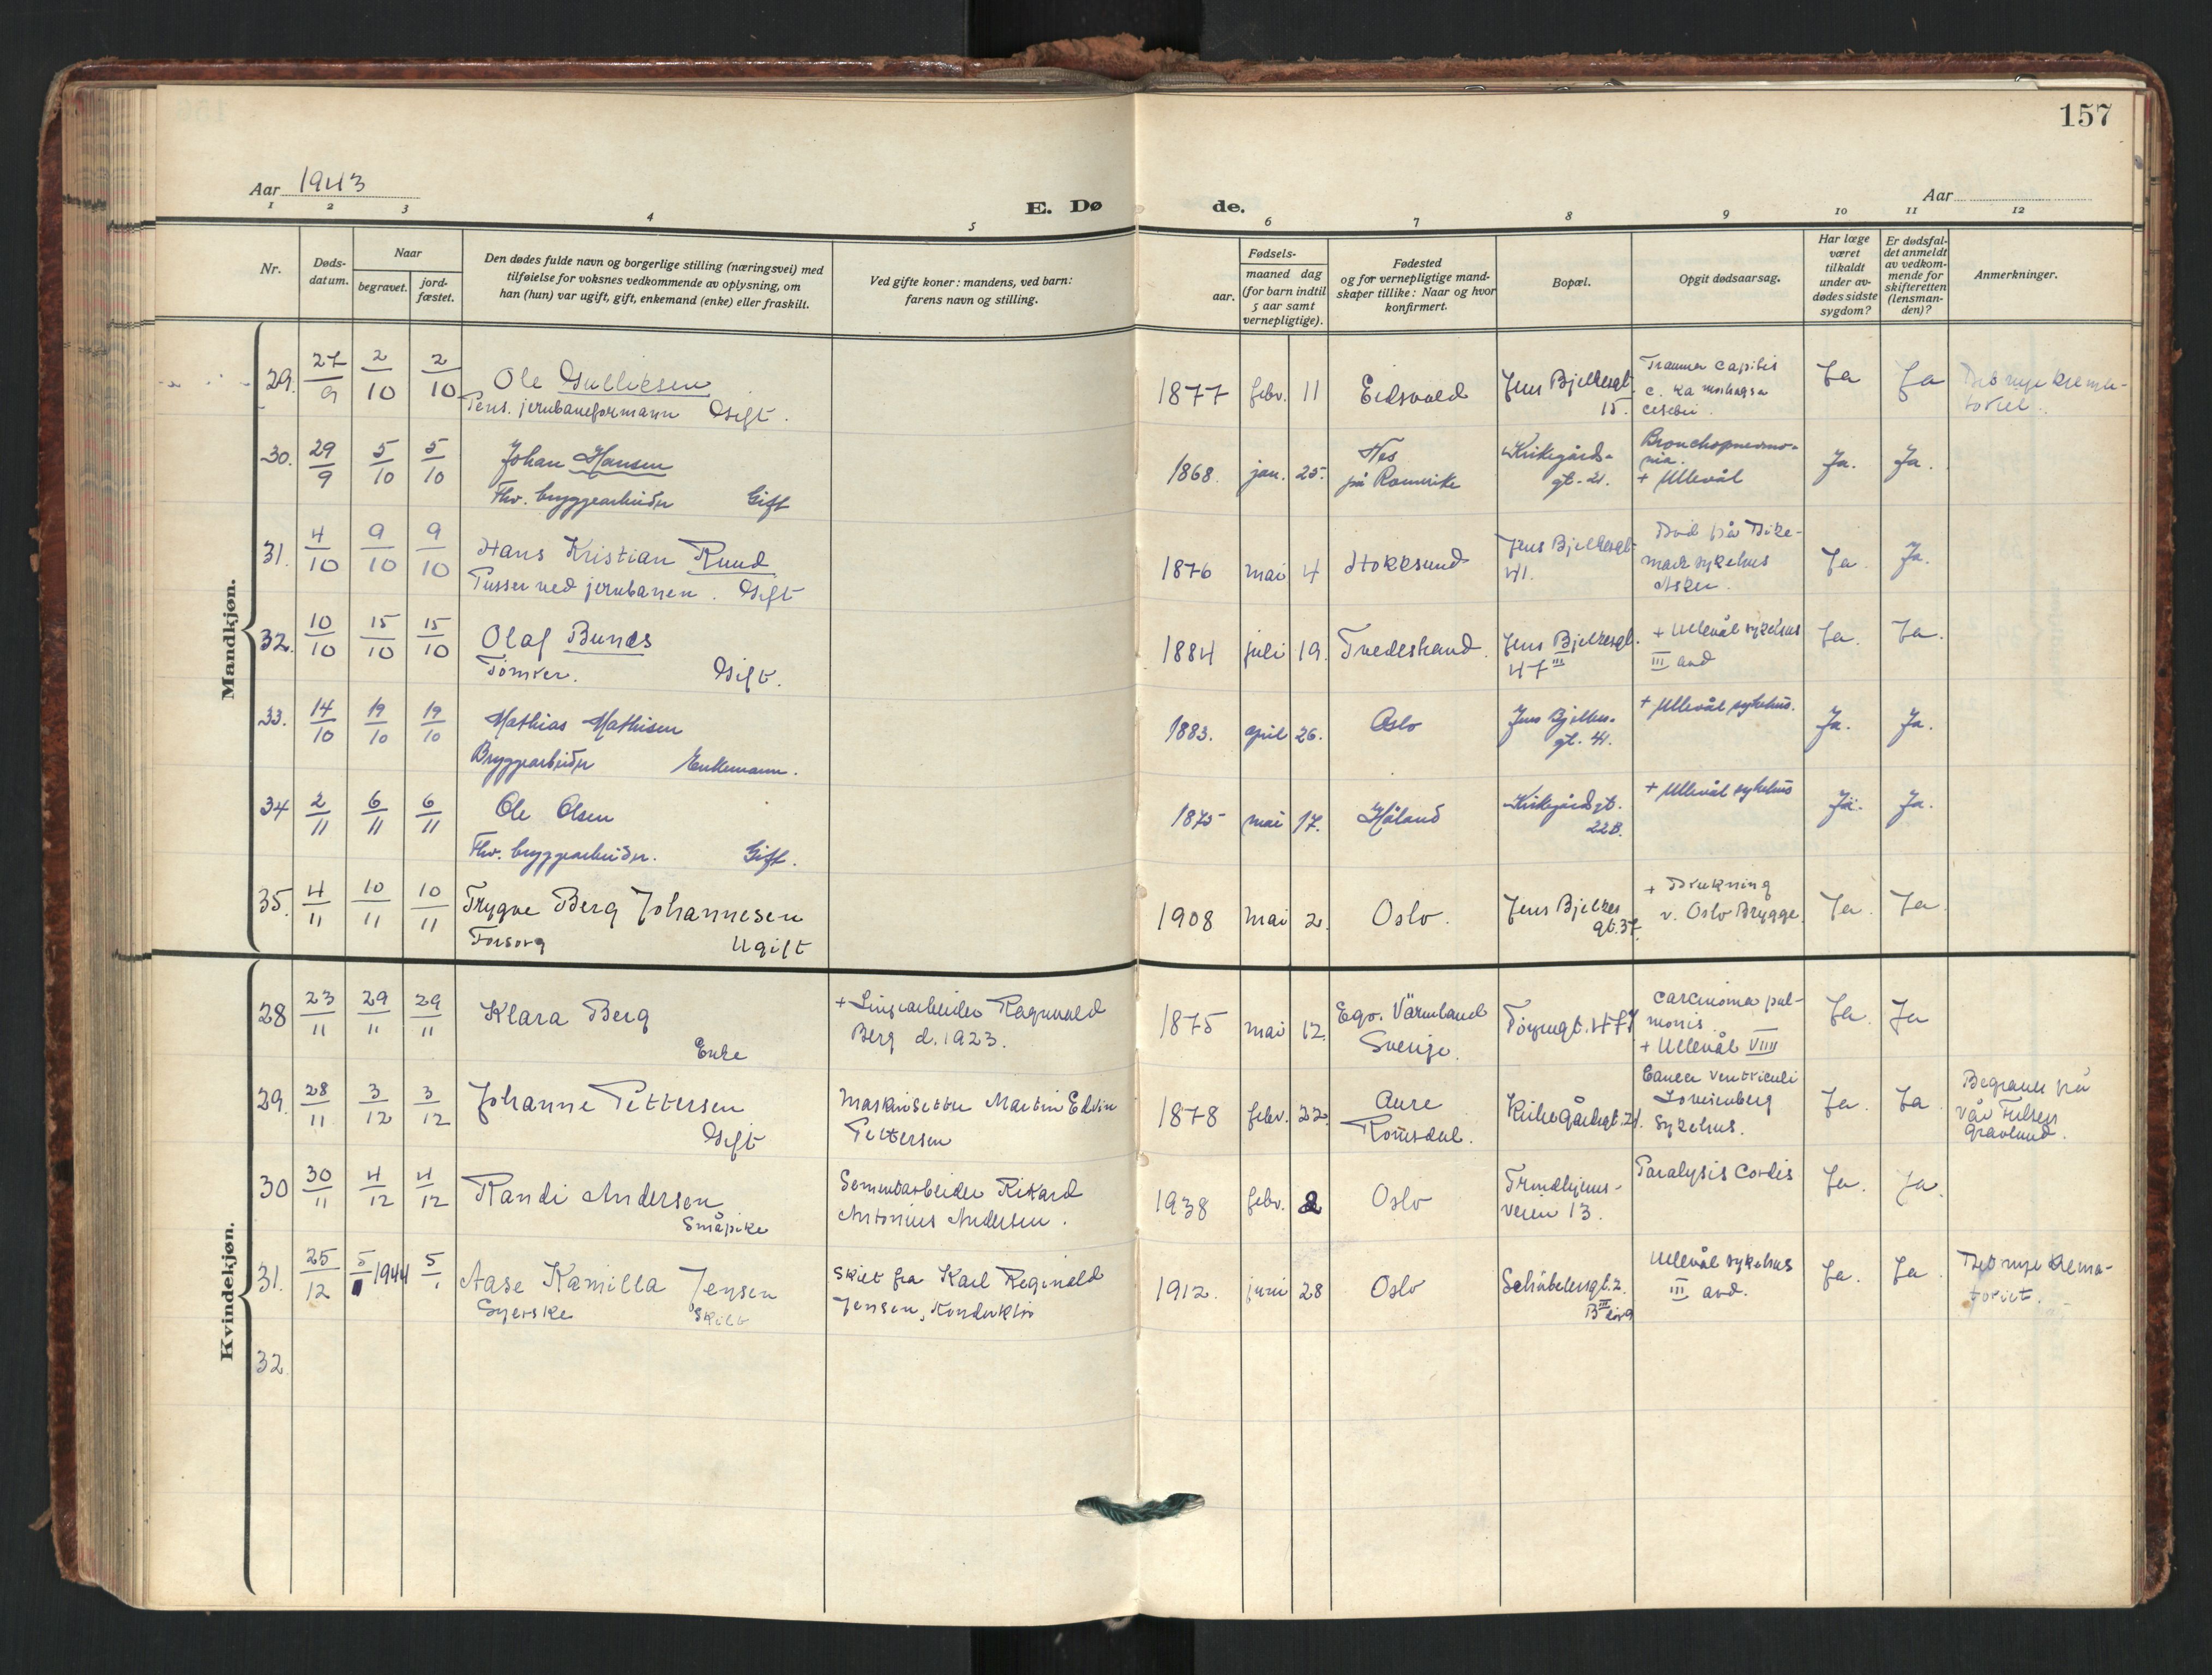 157
Aar 1943
Aar
E. Dø de.
1 2 3 4 5 6 7 8 9 10 11 12
Nr.
Døds-
datum.
Naar
begravet.
jord-
fæstet.
Den dødes fulde navn og borgerlige stilling (næringsvei) med
tilføielse for voksnes vedkommende av oplysning, om
han (hun) var ugift, gift, enkemand (enke) eller fraskilt.
Ved gifte koner: mandens, ved barn:
farens navn og stilling.
Fødsels-
aar.
maaned dag
(for barn indtil
5 aar samt
vernepligtige).
Fødested
og for vernepligtige mand-
skaper tillike: Naar og hvor
konfirmert.
Bopæl.
Opgit dødsaarsag.
Har læge
været
tilkaldt
under av-
dødes sidste
sygdom?
Er dødsfal-
det anmeldt
av vedkom-
mende for
skifteretten
(lensman-
den)?
Anmerkninger.
Mandkjøn.
29. 27/9 2/10 2/10 Ole Gulliksen
Pens. jernbaneformann Gift.
1877 febr. 11 Eidsvold
Jens Bjelkesgt.
15.
Trauma capitis
c.
cerebri.
Ja Ja
Det nye krema-
toriet.
30. 29/9 5/10 5/10 Johan Hansen
Fhv. bryggearbeider Gift
1868. jan. 25.
Nes
på Romerike
Kirkegårds-
gt. 21.
Bronchopneumo-
nia.
+ Ullevål
Ja. Ja.
31. 4/10 9/10 9/10 Hans Kristian Ruud
Pusser ved jernbanen. Gift
1876 mai 4 Hokksund
Jens Bjelkesgt.
41.
Død på Dike-
mark sykehus
Asker.
Ja. Ja.
32. 10/10 15/10 15/10 Olaf Bunes
Tømrer. Gift.
1884 juli 19. Tvedestrand.
Jens Bjelkesgt.
47 III
+ Ullevål sykehus
III avd
Ja. Ja.
33. 14/10 19/10 19/10 Mathias Mathisen
Bryggearbeider Enkemann.
1883. april 26. Oslo
Jens Bjelkes-
gt. 41.
+ Ullevål sykehus.
Ja. Ja.
34 2/11 6/11 6/11 Ole Olsen
Fhv. bryggearbeider. Gift.
1875 mai 17. Håland
Kirkegårdsgt.
22B.
+ Ullevål sykehus
Ja. Ja.
35. 4/11 10/11 10/11 Trygve Berg Johannesen
Forsorg Ugift
1908 mai 2. Oslo.
Jens Bjelkes
gt. 37.
+ Drukning
v. Oslo Brygge.
Ja. Ja.
Kvindekjøn.
28 23/11 29/11 29/11 Klara Berg
Enke
+ Linjearbeider Ragnvald
Berg d. 1923.
1875 mai 12.
Ego. Värmland
Sverige.
Tøyengt. 47
carcinoma pul-
monis
+ Ullevål VIII
Ja. Ja
29. 28/11 3/12 3/12 Johanne Pettersen
Gift
Maskinsetter Martin Edvin
Pettersen
1878 febr. 22.
Aure
Romsdal.
Kirkegårdsgt. 21.
Cancer ventriculi
Lovisenberg
Sykehus.
Ja. Ja.
Begravet på
Vår Frelsers
gravlund.
30 30/11 4/12 4/12 Randi Andersen
Småpike
Sementarbeider Rikard
Antonius Andersen.
1938 febr. 2 Oslo
Trondhjems-
veien 13.
Paralysis Cordis
Ja. Ja.
31. 25/12 5/1 1944 5/1 Aase Kamilla Jensen
Syerske Skilt
Skilt fra Karl Reginald
Jensen, Konduktør
1912. juni 28 Oslo
Schübelersgt. 2.
B III
Ullevål sykehus
III avd.
Ja. Ja.
Det nye krema-
toriet.
32